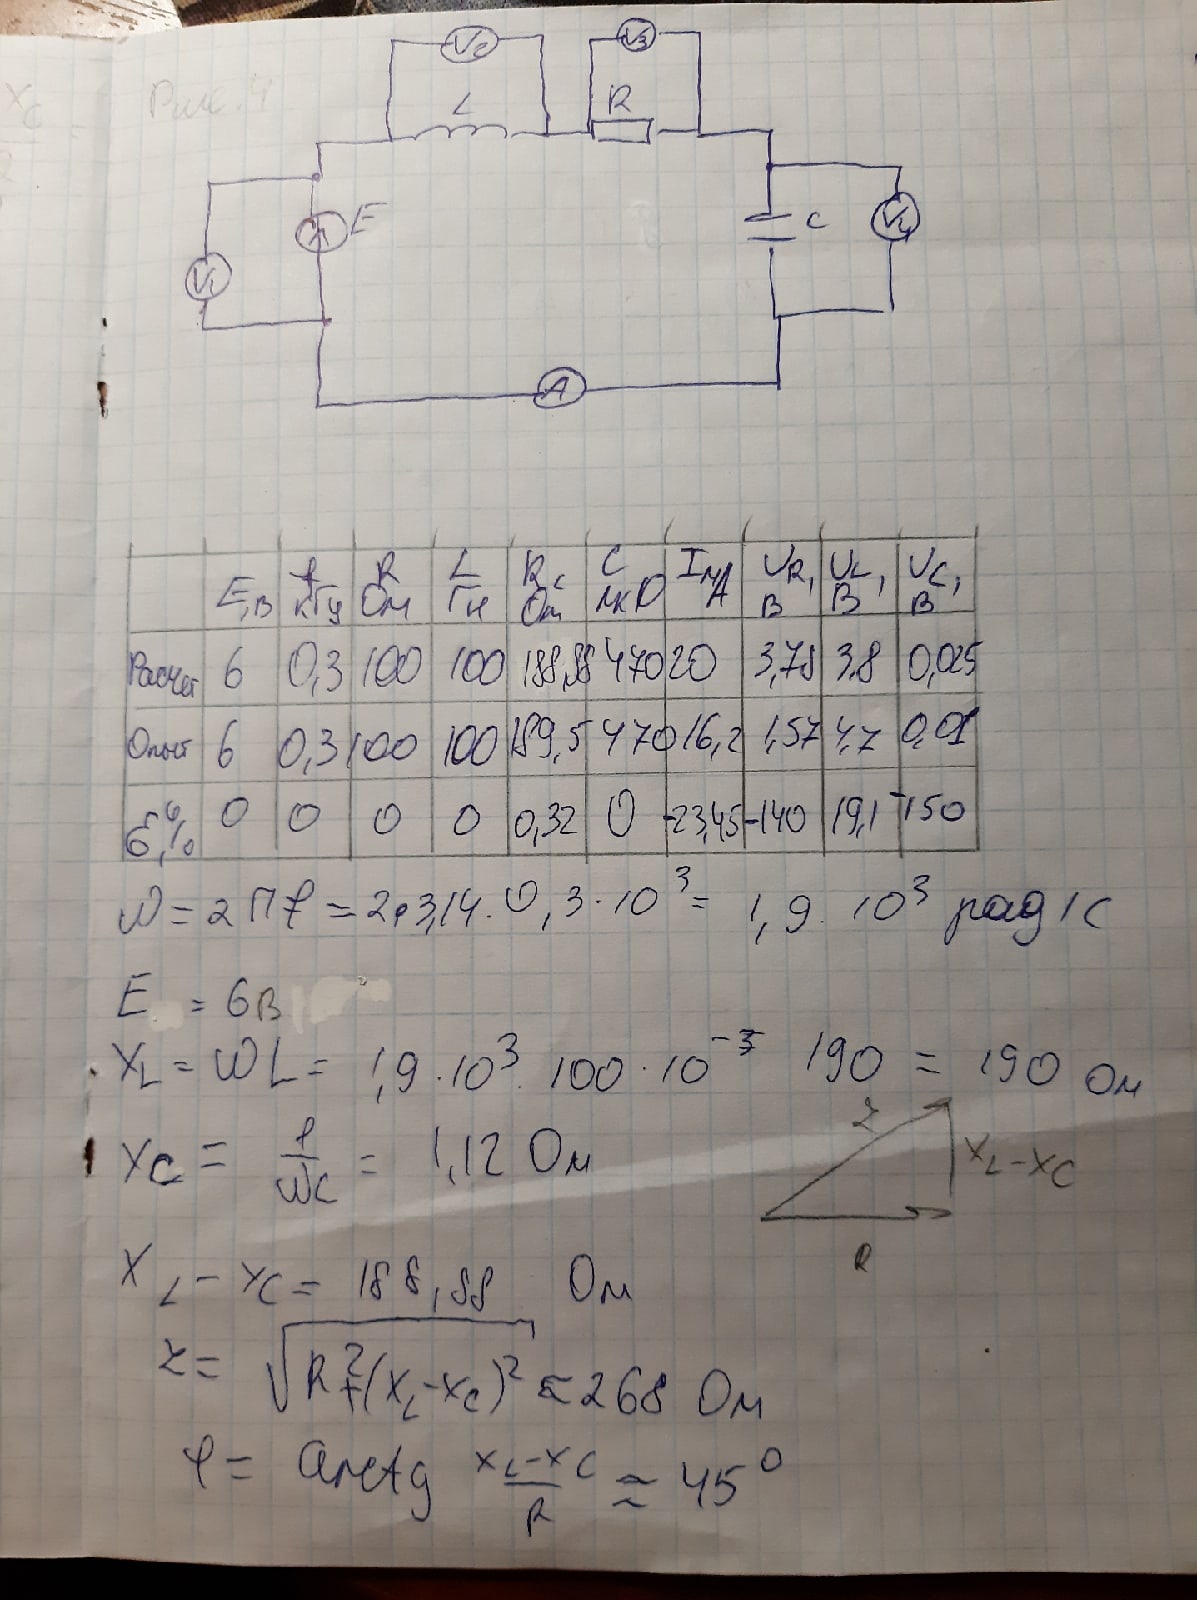 Xc
Рис. 4
V2
V3
L
R
E
V1
C
V4
A
E,В f кГц R Ом L Гн R Ом C мкФ I мА UR, В UL, В UC, В
Расчет 6 0,3 100 100 188,88 470 20 3,78 3,8 0,025
Опыт 6 0,3 100 100 189,5 470 16,2 1,57 4,7 0,01
δ,% 0 0 0 0 0,32 0 -23,45 -140 19,1 -150
ω = 2πf = 2•3,14 · 0,3 · 10³ = 1,9 · 10³ рад/с
E = 6В
XL = ωL = 1,9 · 10³ · 100 · 10⁻³ 190 = 190 Ом
XC = 1/ωC = 1,12 Ом
z
XL-XC
R
XL - XC = 188,88 Ом
z = √R²+(XL-XC)² ≈ 268 Ом
φ = arctg (XL-XC)/R ≈ 45°